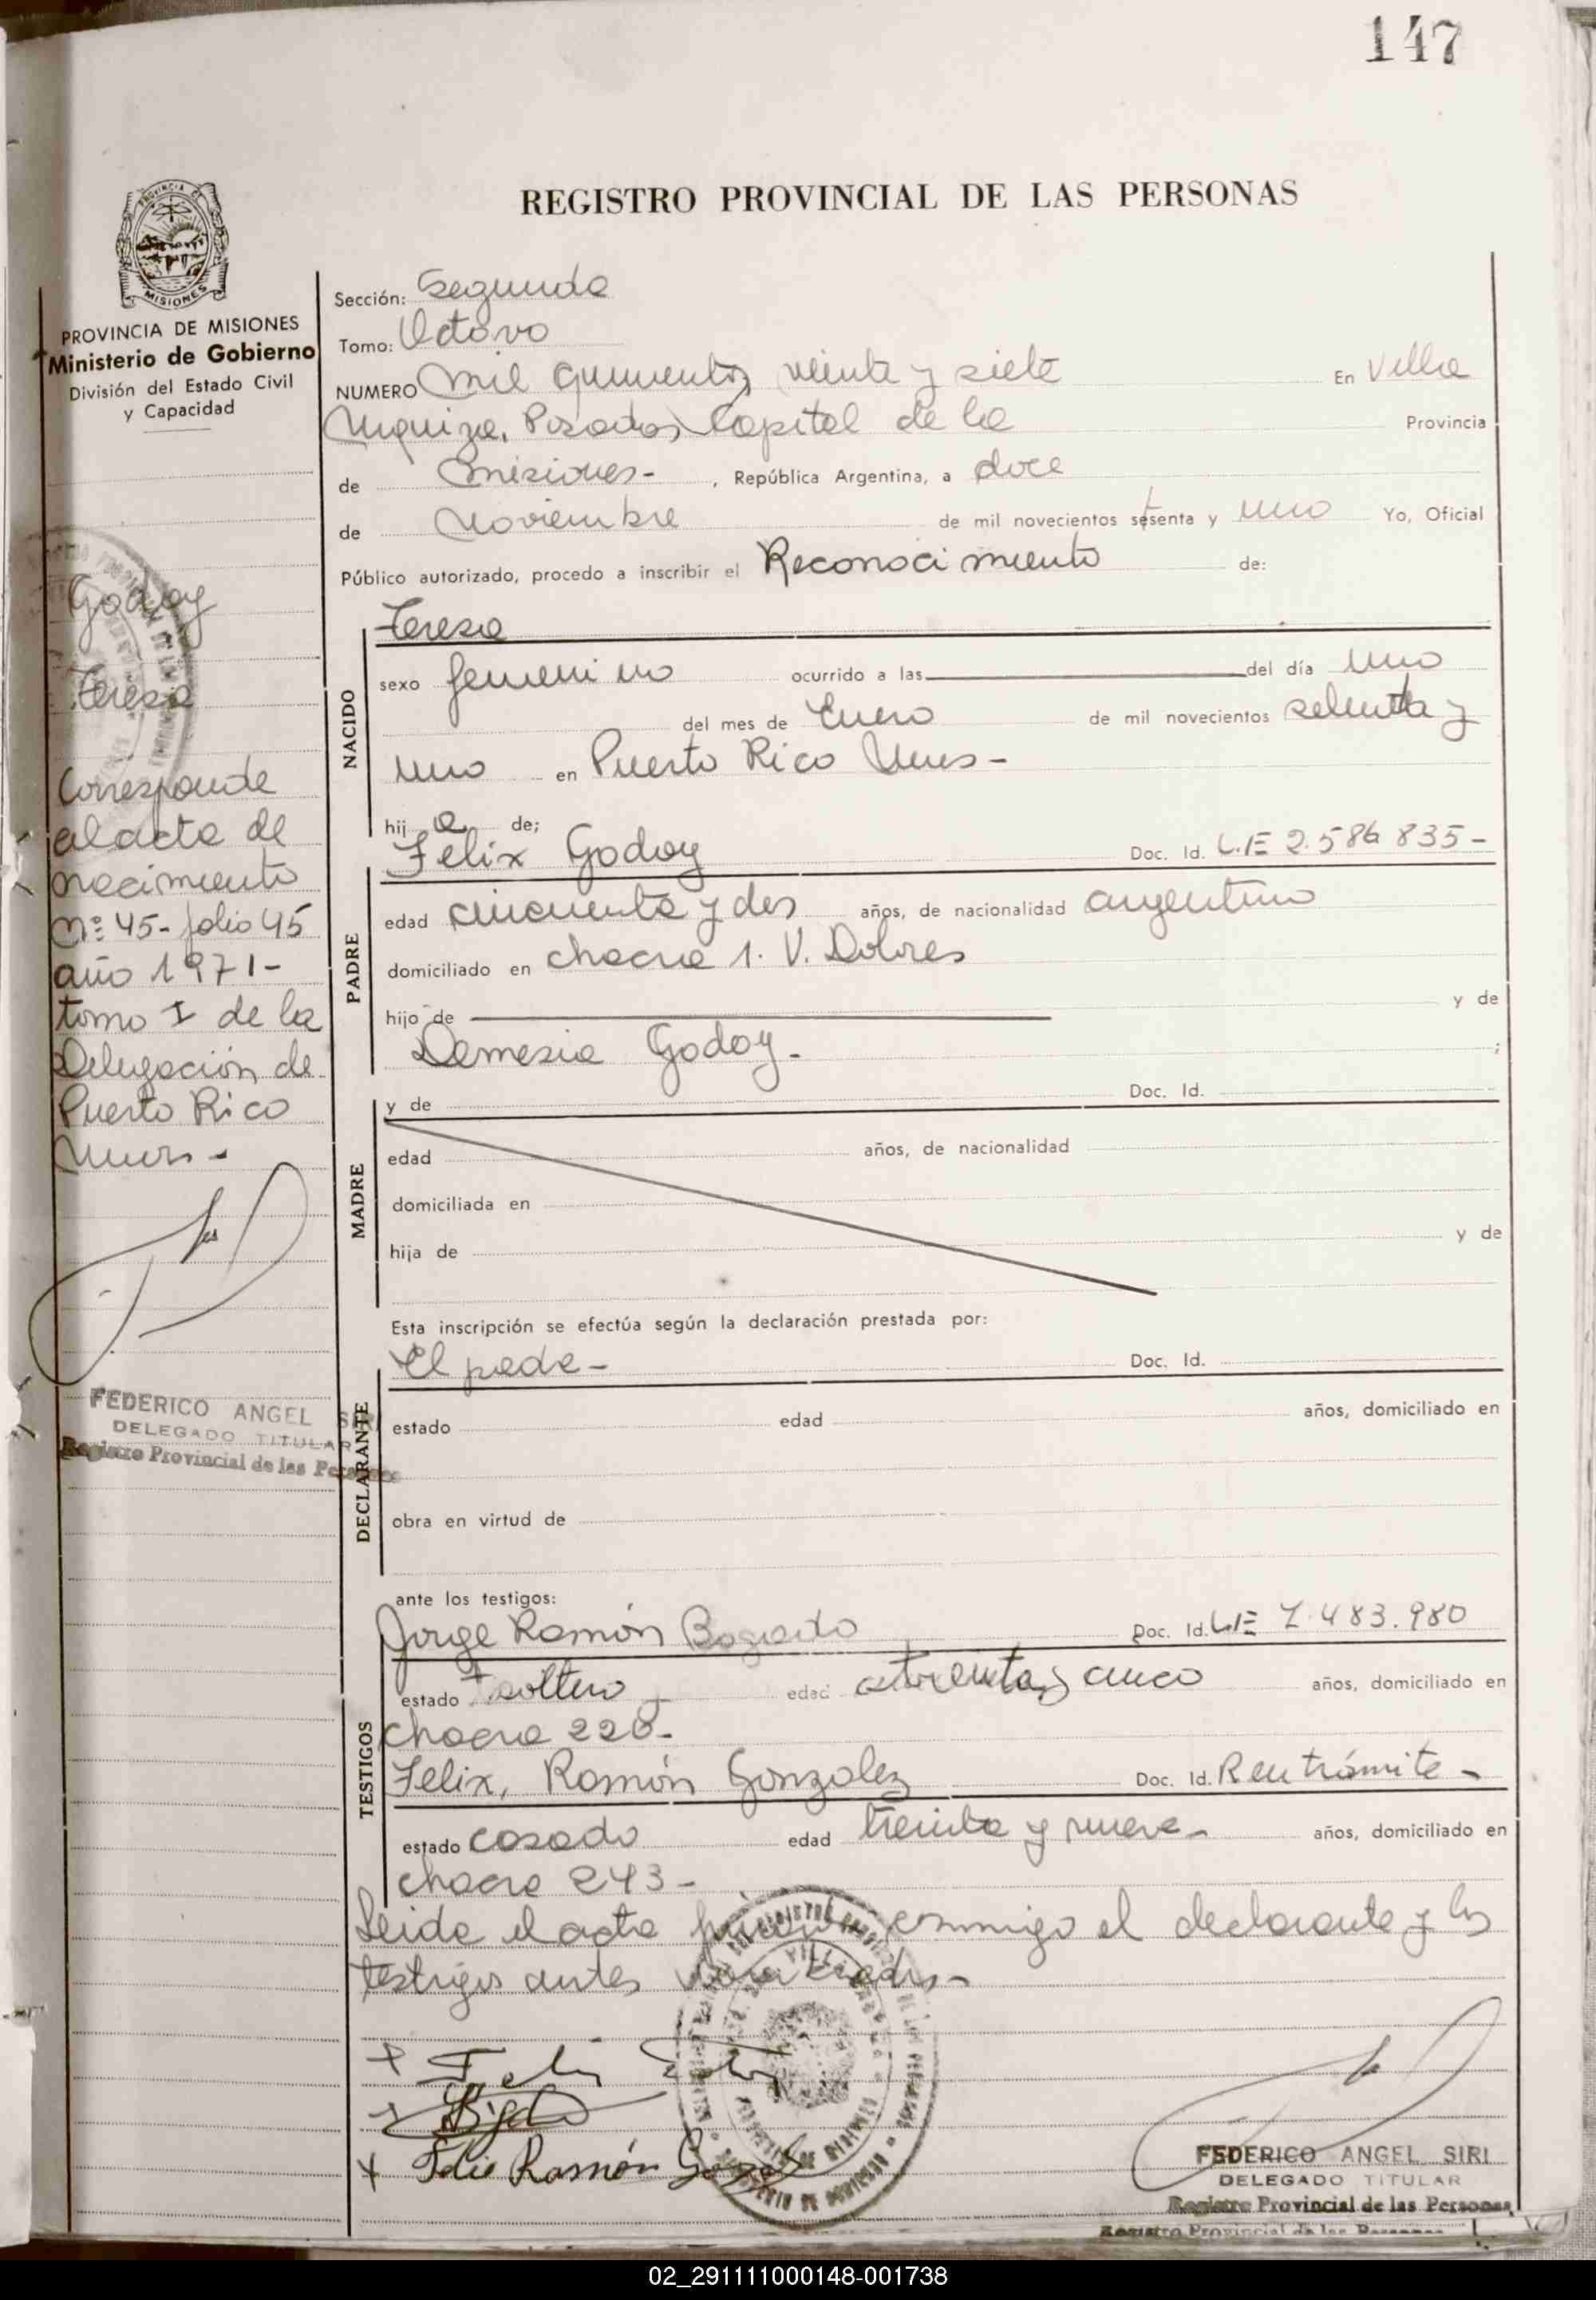 147
REGISTRO PROVINCIAL DE LAS PERSONAS
PROVINCIA DE MISIONES
Ministerio de Gobierno
División del Estado Civil
y Capacidad
Godoy
Teresa
Corresponde
al acta de
nacimiento
nº 45- folio 45
año 1971-
tomo I de la
Delegación de
Puerto Rico
FEDERICO ANGEL SIRI
DELEGADO TITULAR
Registro Provincial de las Personas
Sección: Segunda
Tomo: Octavo
NUMERO mil quinientos veinte y siete En Villa
Urquiza, Posadas Capital de la Provincia
de misiones- , República Argentina, a doce
de noviembre de mil novecientos setenta y uno Yo, Oficial
Público autorizado, procedo a inscribir el Reconocimiento de:
NACIDO
Teresa
sexo femenino ocurrido a las del día uno
del mes de Enero de mil novecientos setenta y
uno en Puerto Rico
hij a de;
PADRE
Félix Godoy Doc. Id. L.E 2.586 835-
edad cincuenta y dos años, de nacionalidad argentino
domiciliado en chacra 1. V. Dolores
hijo de y de
Demesia Godoy-
MADRE
y de Doc. Id.
edad años, de nacionalidad
domiciliada en
hija de y de
Esta inscripción se efectúa según la declaración prestada por:
DECLARANTE
El padre- Doc. Id.
estado edad años, domiciliado en
obra en virtud de
ante los testigos:
TESTIGOS
Jorge Ramón Bogado Doc. Id. L.E 7.483.980
estado soltero edad treinta y cinco años, domiciliado en
chacra 220-
Felix, Ramón Gonzalez Doc. Id. R en trámite-
estado casado edad treinta y nueve- años, domiciliado en
chacra 243-
Leida el acta firman conmigo el declarante y los
testigos antes nombrados-
Felix Ramón
FEDERICO ANGEL SIRI
DELEGADO TITULAR
Registro Provincial de las Personas
Registro Provincial de las Personas
02_291111000148-001738